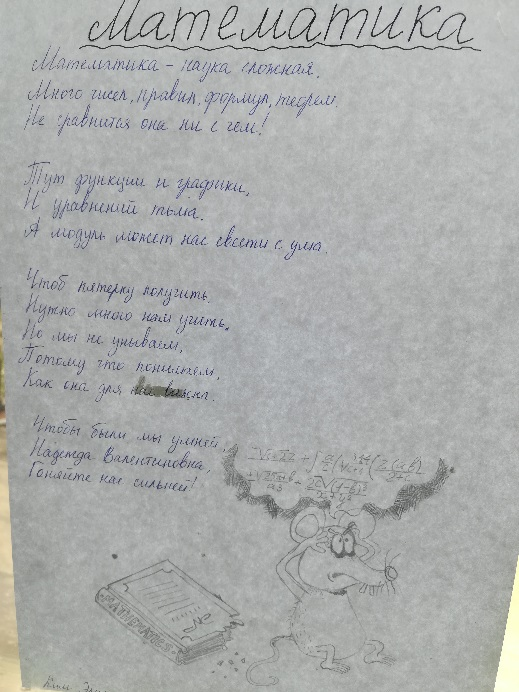 Математика
Математика - наука сложная.
Много чисел, правил, формул, теорем.
Не сравнится она ни с чем!
Тут функции и графики,
И уравнений тьма.
А модуль может нас свести с ума.
Чтоб пятерку получить
Нужно много нам учить,
Но мы не унываем,
Потому что понимаем,
Как она для нас важна.
Чтобы были мы умней,
Надежда Валентиновна,
Гоняйте нас сильней!
MATHEMATICS